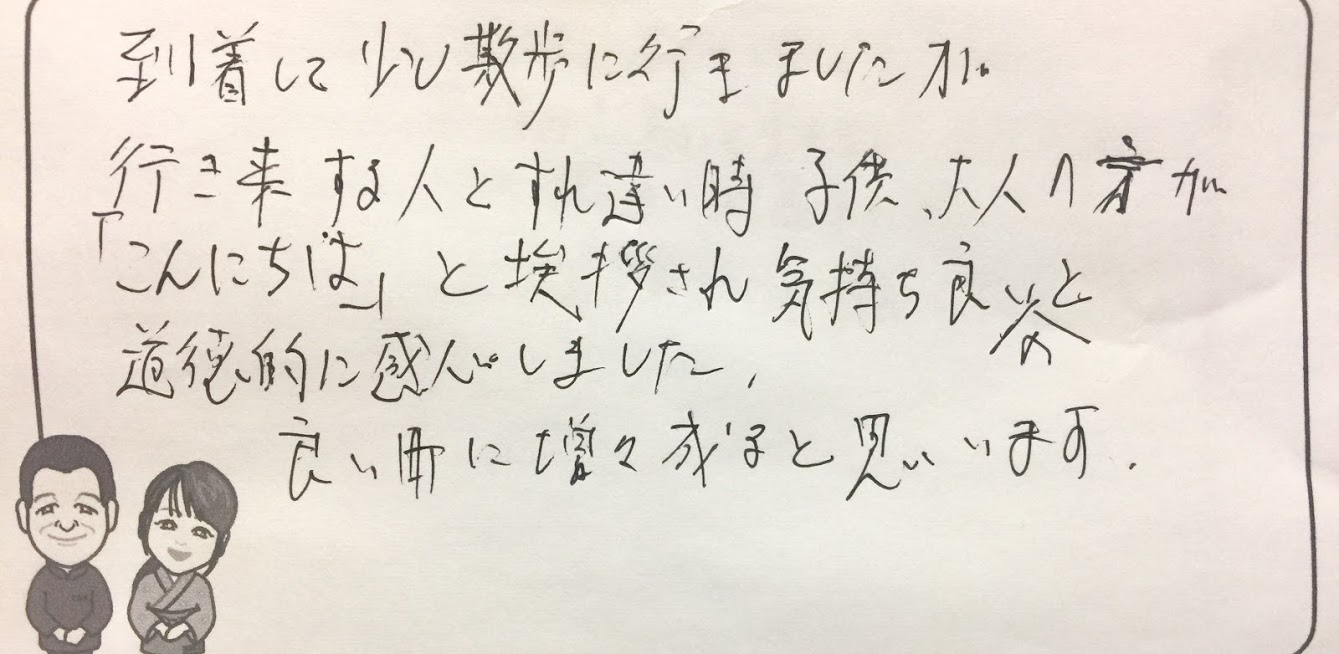 到着して少し散歩に行きましたが
行き来する人とすれ違い時子供、大人の方が
「こんにちは」と挨拶され気持ち良いと
道徳的に感心しました、
良い町に増々成ると思いいます.